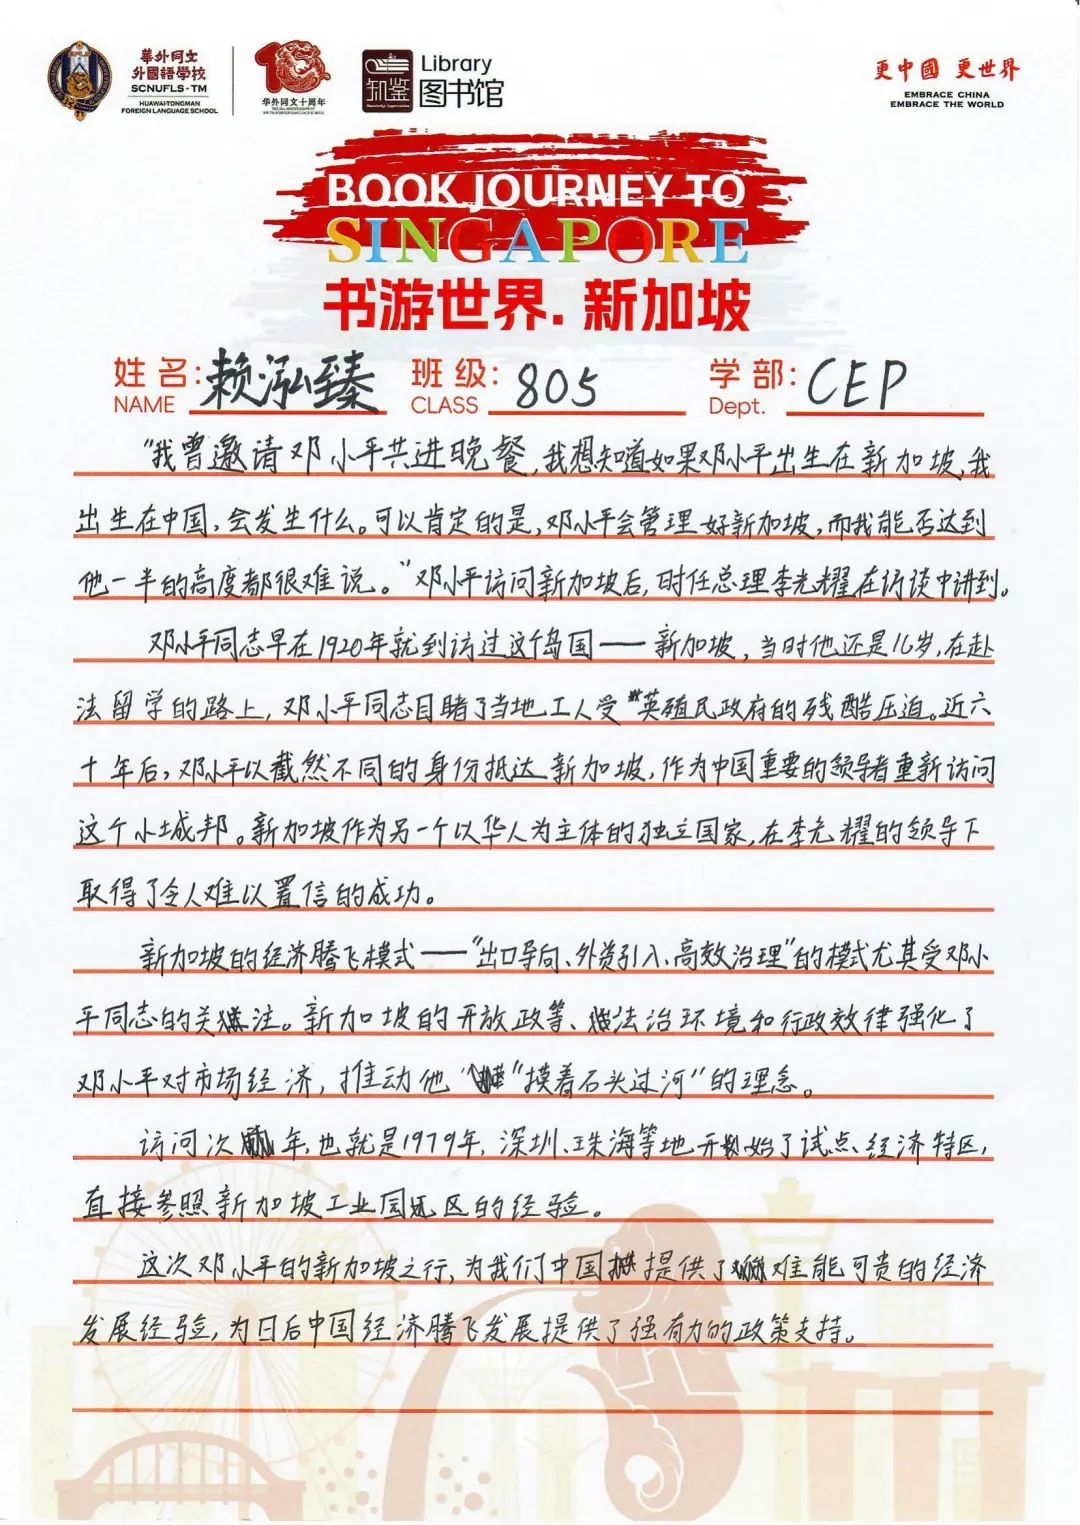 華外同文
外國語學校
SCNUFLS-TM
HUAWAI-TONGMAN
FOREIGN LANGUAGE SCHOOL
华外同文十周年
知鉴
Library
图书馆
更中國 更世界
EMBRACE CHINA
EMBRACE THE WORLD
BOOK JOURNEY TO
SINGAPORE
书游世界.新加坡
姓名:赖泓臻 班级:805 学部:CEP
NAME CLASS Dept.
"我曾邀请邓小平共进晚餐,我想知道如果邓小平出生在新加坡,我
出生在中国,会发生什么。可以肯定的是,邓小平会管理好新加坡,而我能否达到
他一半的高度都很难说。"邓小平访问新加坡后,时任总理李光耀在访谈中讲到。
邓小平同志早在1920年就到访过这个岛国——新加坡,当时他还是16岁,在赴
法留学的路上,邓小平同志目睹了当地工人受英殖民政府的残酷压迫。近六
十年后,邓小平以截然不同的身份抵达新加坡,作为中国重要的领导者重新访问
这个小城邦。新加坡作为另一个以华人为主体的独立国家,在李光耀的领导下
取得了令人难以置信的成功。
新加坡的经济腾飞模式——"出口导向、外资引入、高效治理"的模式尤其受邓小
平同志的关注。新加坡的开放政策、法治环境和行政效律强化了
邓小平对市场经济,推动他"摸着石头过河"的理念。
访问次年,也就是1979年,深圳、珠海等地开始了试点经济特区,
直接参照新加坡工业园区的经验。
这次邓小平的新加坡之行,为我们中国提供了难能可贵的经济
发展经验,为日后中国经济腾飞发展提供了强有力的政策支持。